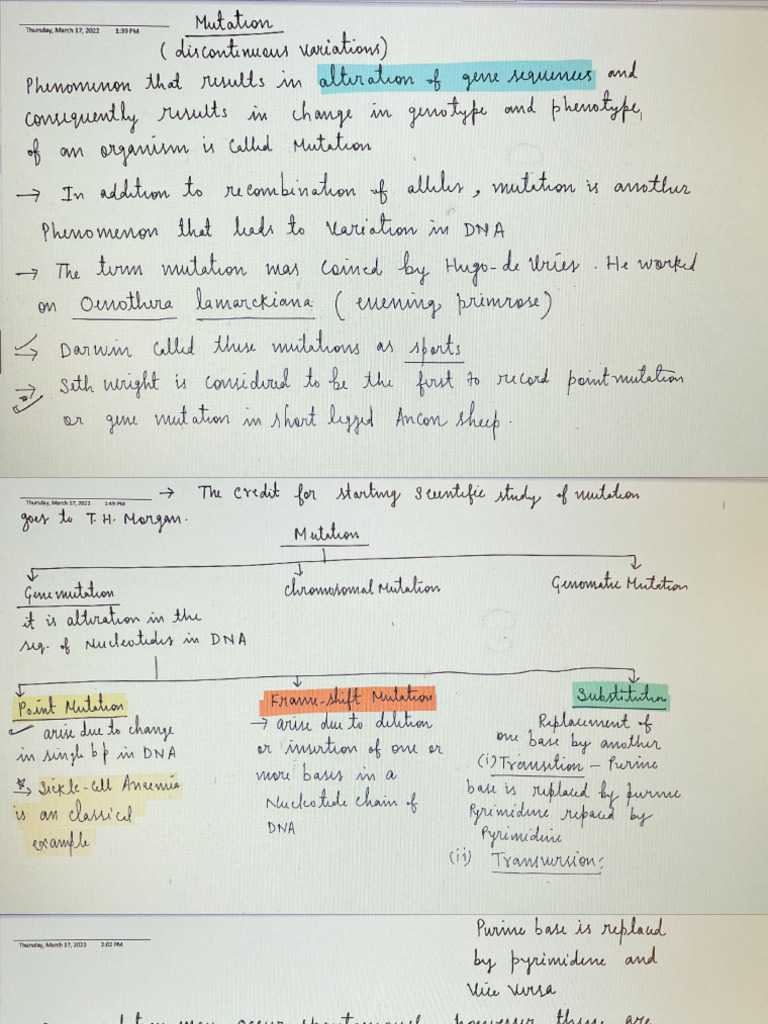 Thursday, March 17, 2022 1:39 PM
Mutation
(discontinuous variations)
Phenomenon that results in alteration of gene sequences and
consequently results in change in genotype and phenotype,
of an organism is called Mutation
→ In addition to recombination of alleles, mutation is another
Phenomenon that leads to variation in DNA
→ The term mutation was coined by Hugo-de Vries. He worked
on Oenothera lamarckiana (evening primrose)
→ Darwin called these mutations as sports
→ Seth wright is considered to be the first to record point mutation
or gene mutation in short legged Ancon sheep.
Thursday, March 17, 2022 1:49 PM
→ The credit for starting scientific study of mutation
goes to T.H. Morgan.
Mutation
Gene mutation
it is alteration in the
seq. of Nucleotides in DNA
Chromosomal Mutation
Genomatic Mutation
Point Mutation
✓ arise due to change
in single bp in DNA
→ Sickle-cell Anaemia
is an classical
example
Frame-shift Mutation
→ arise due to deletion
or insertion of one or
more bases in a
Nucleotide chain of
DNA
Substitution
Replacement of
one base by another
(i) Transition - Purine
base is replaced by purine
Pyrimidine repaced by
Pyrimidine
(ii) Transversion:
Thursday, March 17, 2022 2:02 PM
Purine base is replaced
by pyrimidine and
Vice Versa
may occur spontaneously however there are